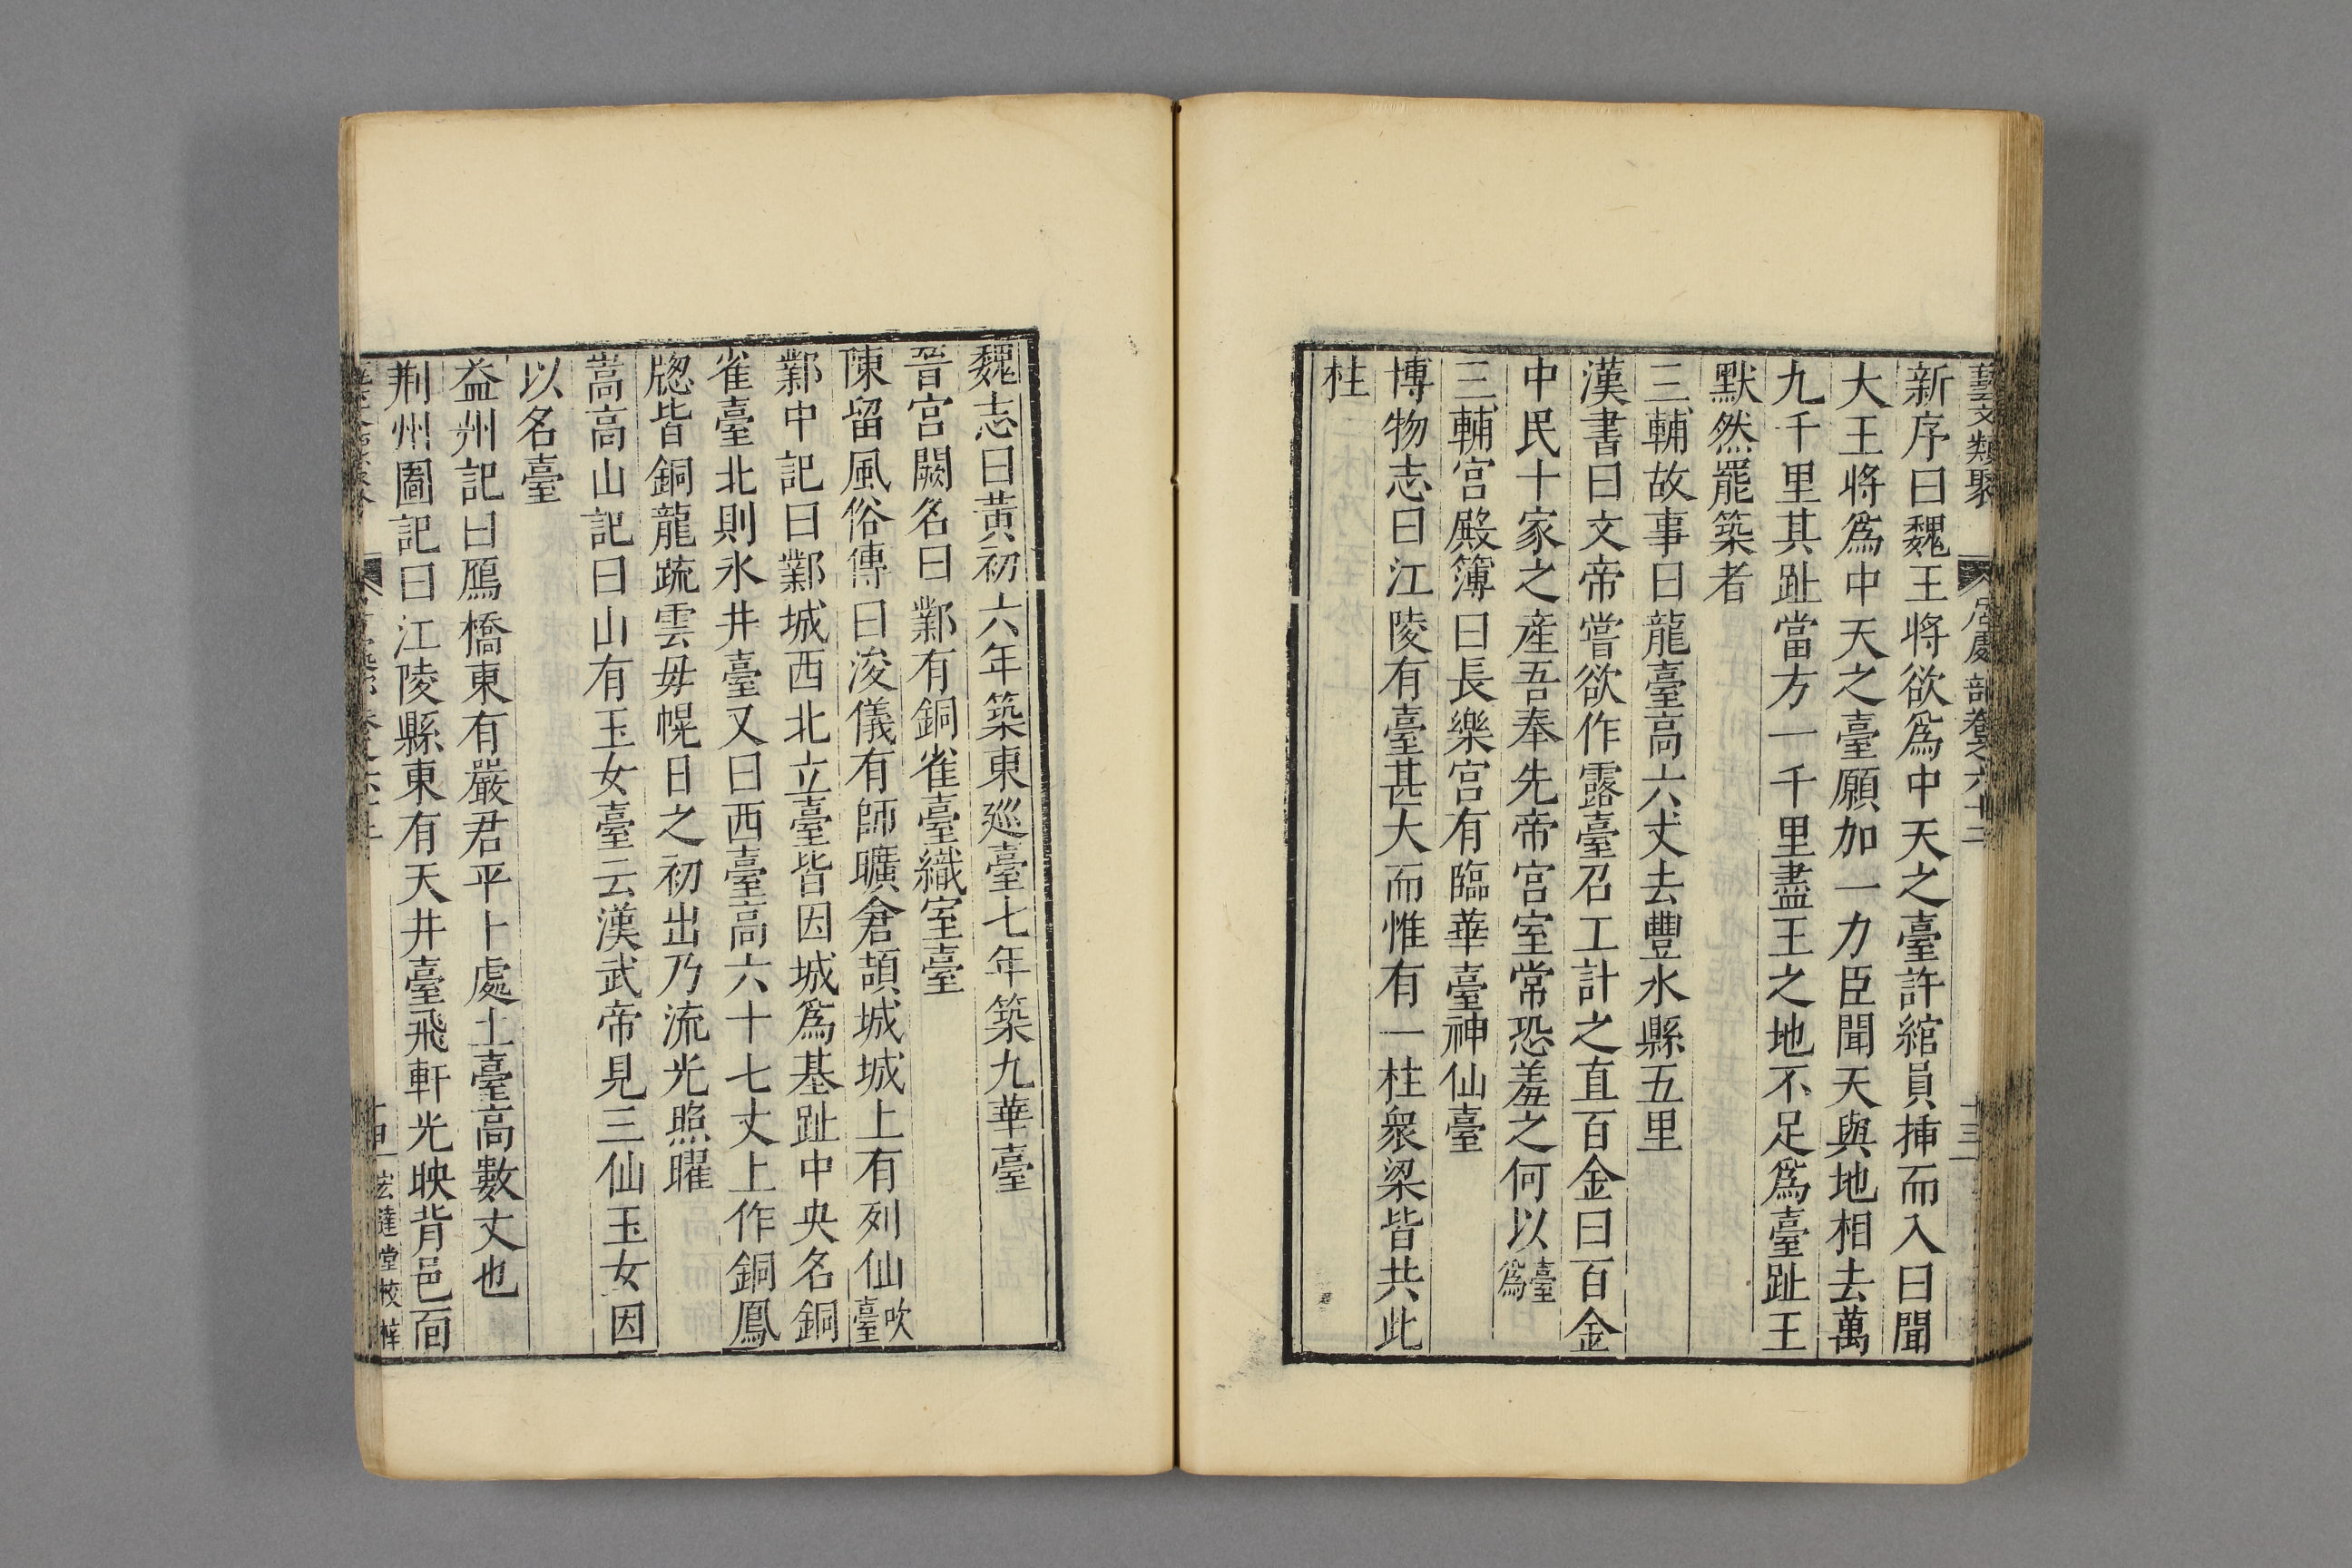 藝文類聚 居處部卷之六十二 十三
新序曰魏王将欲爲中天之臺許綰員揷而入曰聞
大王将爲中天之臺願加一力臣聞天與地相去萬
九千里其趾當方一千里盡王之地不足爲臺趾王
默然罷築者
三輔故事曰龍臺高六丈去豐水縣五里
漢書曰文帝嘗欲作露臺召工計之直百金曰百金
中民十家之産吾奉先帝宫室常恐羞之何以臺爲
三輔宫殿簿曰長樂宫有臨華臺神仙臺
博物志曰江陵有臺甚大而惟有一柱衆梁皆共此
柱
魏志曰黄初六年築東巡臺七年築九華臺
晉宫闕名曰鄴有銅雀臺織室臺
陳留風俗傳曰浚儀有師曠倉頡城城上有列仙吹臺
鄴中記曰鄴城西北立臺皆因城爲基趾中央名銅
雀臺北則氷井臺又曰西臺高六十七丈上作銅鳳
牕皆銅龍疏雲母幌日之初出乃流光照曜
嵩高山記曰山有玉女臺云漢武帝見三仙玉女因
以名臺
益州記曰鴈橋東有嚴君平卜處土臺高數丈也
荆州圖記曰江陵縣東有天井臺飛軒光映背邑面
宏達堂校梓